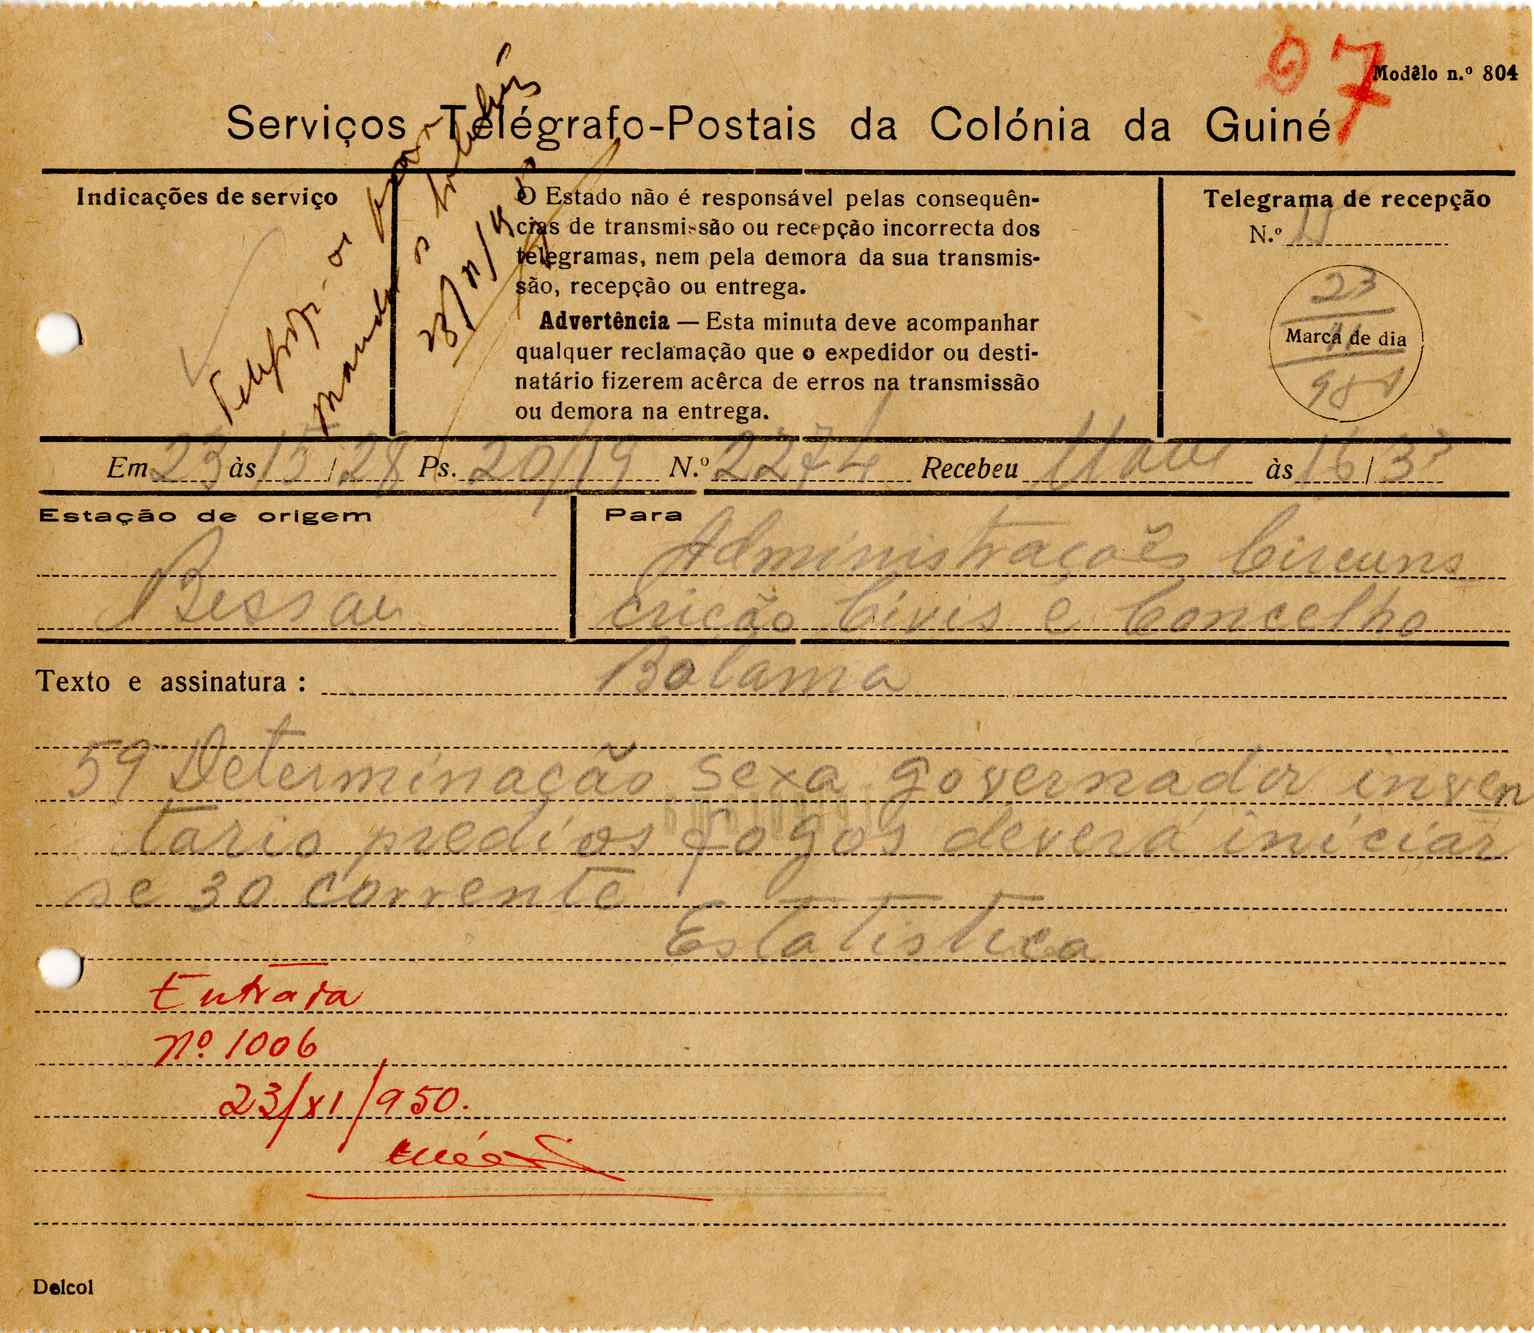 97
Modêlo n.º 804
Serviços Telégrafo-Postais da Colónia da Guiné
Indicações de serviço
O Estado não é responsável pelas consequên-
cias de transmissão ou recepção incorrecta dos
telegramas, nem pela demora da sua transmis-
são, recepção ou entrega.
Advertência — Esta minuta deve acompanhar
qualquer reclamação que o expedidor ou desti-
natário fizerem acêrca de erros na transmissão
ou demora na entrega.
Telegrama de recepção
N.º
23
Marca de dia
Em 23 às 15/28 Ps. 20/19 N.º 2274 Recebeu às 16/35
Estação de origem
Bissau
Para
Administrações Circuns
crição Civis e Concelho
Bolama
Texto e assinatura :
59 Determinação sexa governador inven
tario predios fogos deverá iniciar
se 30 corrente
Estatistica
Entrada
Nº 1006
23/XI/950.
Delcol